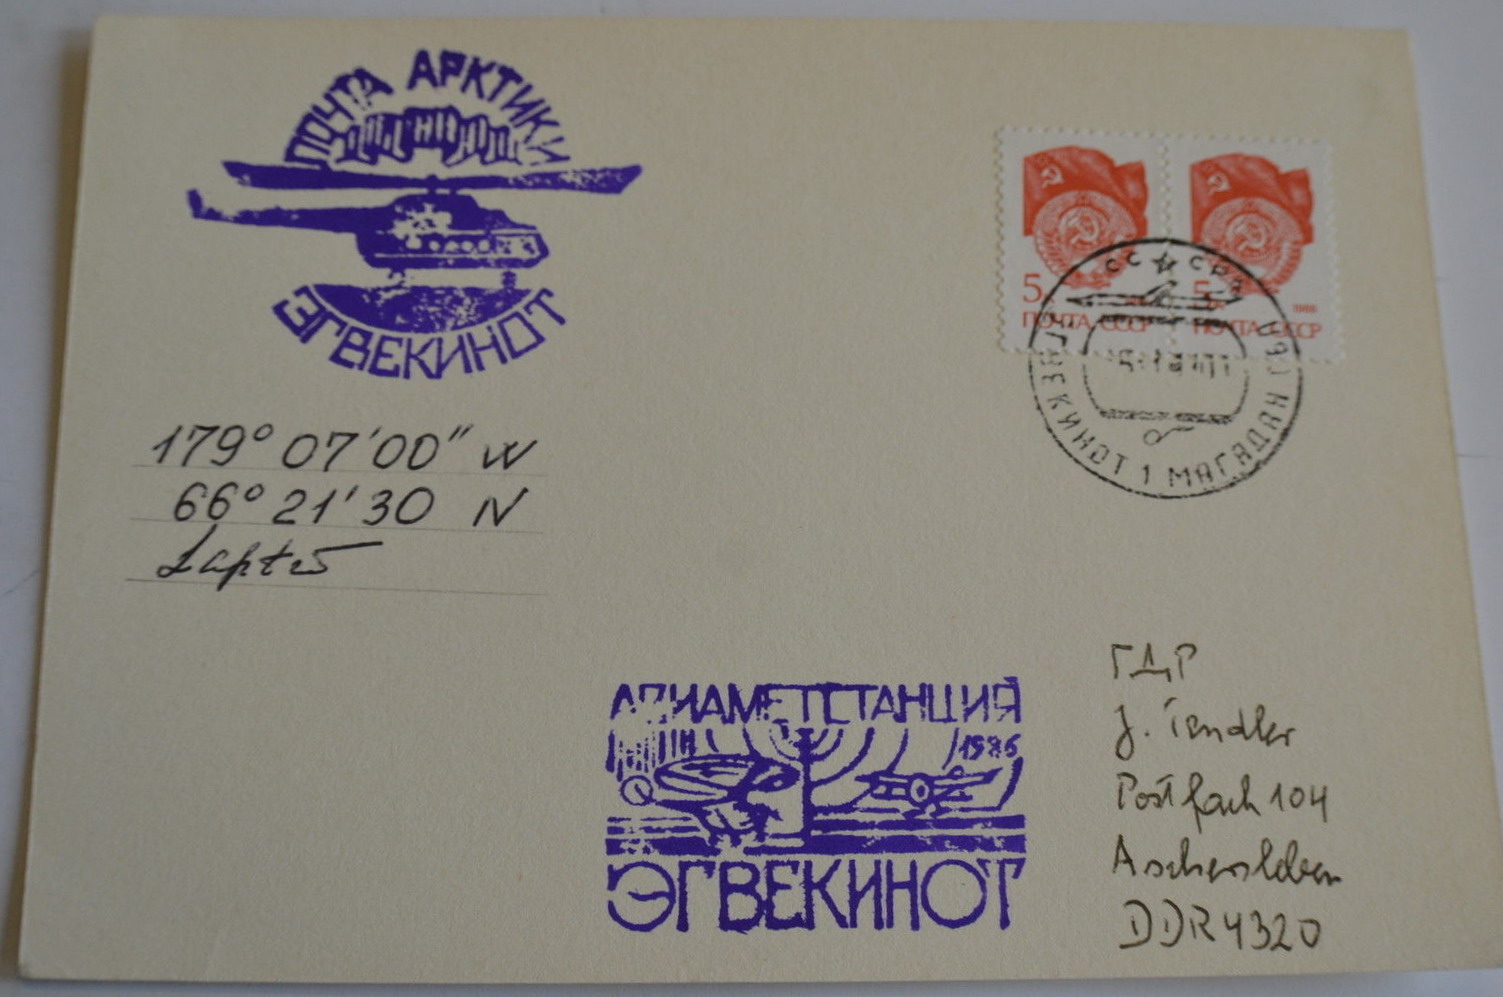 ПОЧТА АРКТИКИ
ЭГВЕКИНОТ
5к 5к
1988
ПОЧТА СССР ПОЧТА СССР
СССР
ЭГВЕКИНОТ 1 МАГАДАН ОБЛ
179° 07' 00" W
66° 21' 30 N
АВИАМЕТСТАНЦИЯ
1986
ЭГВЕКИНОТ
ГДР
J. Tendler
Postfach 104
Aschersleben
DDR 4320